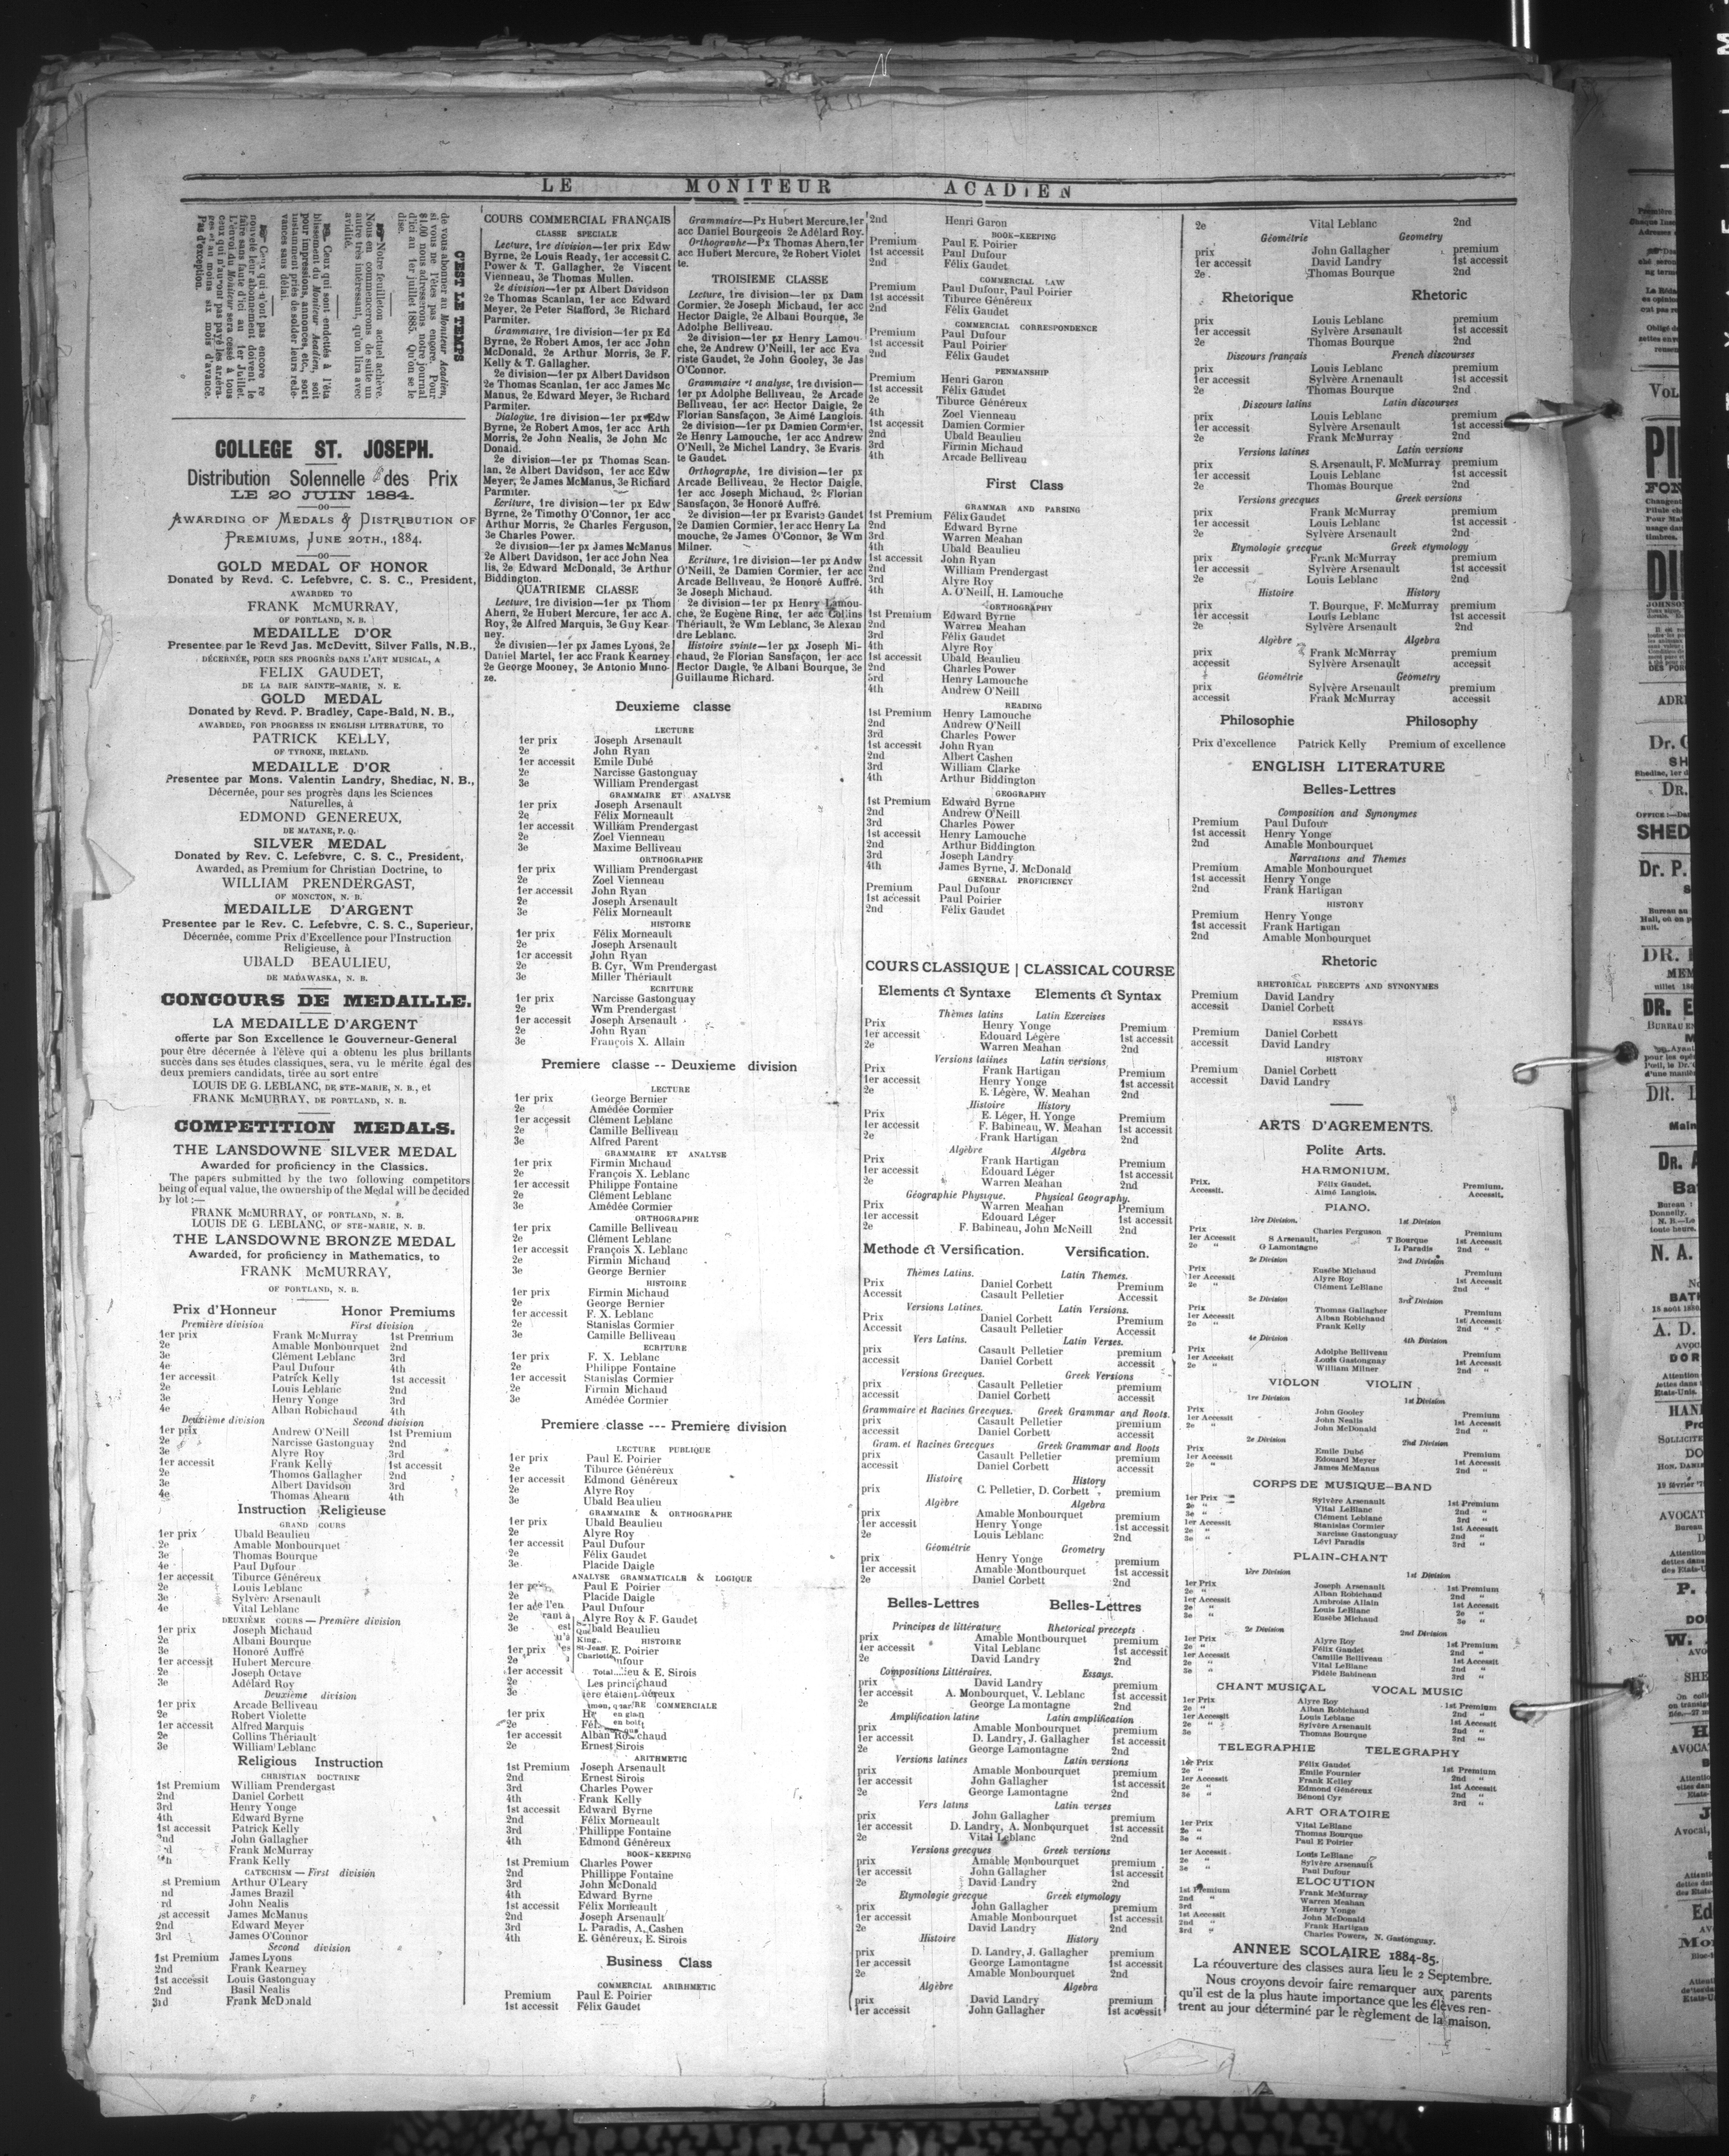 LE MONITEUR ACADIEN
C'EST LE TEMPS
de vous abonner au Moniteur Acadien,
si vous ne l'êtes pas encore. Pour
$1.00 nous adresserons notre journal
d'ici au 1er juillet 1885. Qu'on se le
dise.
Notre feuilleton actuel achève.
Nous en commencerons de suite un
autre très intéressant, qu'on lira avec
avidité.
Ceux qui sont endettés à l'éta
blissement du Moniteur Acadien, soit
pour impressions, annonces, etc., sont
instamment priés de solder leurs rede-
vances sans délai.
Ceux qui n'ont pas encore re
nouvelé leur abonnement doivent le
faire sans faute d'ici au 1er Juillet.
L'envoi du Moniteur sera cessé à tous
ceux qui n'auront pas payé les arréra-
ges et au moins six mois d'avance.
Pas d'exception.
COLLEGE ST. JOSEPH.
Distribution Solennelle des Prix
LE 20 JUIN 1884.
AWARDING OF MEDALS & DISTRIBUTION OF
PREMIUMS, JUNE 20TH., 1884.
GOLD MEDAL OF HONOR
Donated by Revd. C. Lefebvre, C. S. C., President,
AWARDED TO
FRANK McMURRAY,
OF PORTLAND, N. B.
MEDAILLE D'OR
Presentee par le Revd Jas. McDevitt, Silver Falls, N.B.,
DÉCERNÉE, POUR SES PROGRÈS DANS L'ART MUSICAL, A
FELIX GAUDET,
DE LA BAIE SAINTE-MARIE, N. E.
GOLD MEDAL
Donated by Revd. P. Bradley, Cape-Bald, N. B.,
AWARDED, FOR PROGRESS IN ENGLISH LITERATURE, TO
PATRICK KELLY,
OF TYRONE, IRELAND.
MEDAILLE D'OR
Presentee par Mons. Valentin Landry, Shediac, N. B.,
Décernée, pour ses progrès dans les Sciences
Naturelles, à
EDMOND GENEREUX,
DE MATANE, P. Q.
SILVER MEDAL
Donated by Rev. C. Lefebvre, C. S. C., President,
Awarded, as Premium for Christian Doctrine, to
WILLIAM PRENDERGAST,
OF MONCTON, N. B.
MEDAILLE D'ARGENT
Presentee par le Rev. C. Lefebvre, C. S. C., Superieur,
Décernée, comme Prix d'Excellence pour l'Instruction
Religieuse, à
UBALD BEAULIEU,
DE MADAWASKA, N. B.
CONCOURS DE MEDAILLE.
LA MEDAILLE D'ARGENT
offerte par Son Excellence le Gouverneur-General
pour être décernée à l'élève qui a obtenu les plus brillants
succès dans ses études classiques, sera, vu le mérite égal des
deux premiers candidats, tirée au sort entre
LOUIS DE G. LEBLANC, DE STE-MARIE, N. B., et
FRANK McMURRAY, DE PORTLAND, N. B.
COMPETITION MEDALS.
THE LANSDOWNE SILVER MEDAL
Awarded for proficiency in the Classics.
The papers submitted by the two following competitors
being of equal value, the ownership of the Medal will be decided
by lot :—
FRANK McMURRAY, OF PORTLAND, N. B.
LOUIS DE G. LEBLANC, OF STE-MARIE, N. B.
THE LANSDOWNE BRONZE MEDAL
Awarded, for proficiency in Mathematics, to
FRANK McMURRAY,
OF PORTLAND, N. B.
Prix d'Honneur Honor Premiums
Première division First division
1er prix Frank McMurray 1st Premium
2e Amable Monbourquet 2nd
3e Clément Leblanc 3rd
4e Paul Dufour 4th
1er accessit Patrick Kelly 1st accessit
2e Louis Leblanc 2nd
3e Henry Yonge 3rd
4e Alban Robichaud 4th
Deuxième division Second division
1er prix Andrew O'Neill 1st Premium
2e Narcisse Gastonguay 2nd
3e Alyre Roy 3rd
1er accessit Frank Kelly 1st accessit
2e Thomos Gallagher 2nd
3e Albert Davidson 3rd
4e Thomas Ahearn 4th
Instruction Religieuse
GRAND COURS
1er prix Ubald Beaulieu
2e Amable Monbourquet
3e Thomas Bourque
4e Paul Dufour
1er accessit Tiburce Généreux
2e Louis Leblanc
3e Sylvère Arsenault
4e Vital Leblanc
DEUXIÈME COURS — Première division
1er prix Joseph Michaud
2e Albani Bourque
3e Honoré Auffré
1er accessit Hubert Mercure
2e Joseph Octave
3e Adélard Roy
Deuxième division
1er prix Arcade Belliveau
2e Robert Violette
1er accessit Alfred Marquis
2e Collins Thériault
3e William Leblanc
Religious Instruction
CHRISTIAN DOCTRINE
1st Premium William Prendergast
2nd Daniel Corbett
3rd Henry Yonge
4th Edward Byrne
1st accessit Patrick Kelly
2nd John Gallagher
Frank McMurray
Frank Kelly
CATECHISM — First division
st Premium Arthur O'Leary
nd James Brazil
rd John Nealis
1st accessit James McManus
2nd Edward Meyer
3rd James O'Connor
Second division
1st Premium James Lyons
2nd Frank Kearney
1st accessit Louis Gastonguay
2nd Basil Nealis
3rd Frank McDonald
COURS COMMERCIAL FRANÇAIS
CLASSE SPECIALE
Lecture, 1re division—1er prix Edw
Byrne, 2e Louis Ready, 1er accessit C.
Power & T. Gallagher, 2e Vincent
Vienneau, 3e Thomas Mullen.
2e division—1er px Albert Davidson
2e Thomas Scanlan, 1er acc Edward
Meyer, 2e Peter Stafford, 3e Richard
Parmiter.
Grammaire, 1re division—1er px Ed
Byrne, 2e Robert Amos, 1er acc John
McDonald, 2e Arthur Morris, 3e F.
Kelly & T. Gallagher.
2e division—1er px Albert Davidson
2e Thomas Scanlan, 1er acc James Mc
Manus, 2e Edward Meyer, 3e Richard
Parmiter.
Dialogue, 1re division—1er px Edw
Byrne, 2e Robert Amos, 1er acc Arth
Morris, 2e John Nealis, 3e John Mc
Donald.
2e division—1er px Thomas Scan-
lan, 2e Albert Davidson, 1er acc Edw
Meyer, 2e James McManus, 3e Richard
Parmiter.
Ecriture, 1re division—1er px Edw
Byrne, 2e Timothy O'Connor, 1er acc
Arthur Morris, 2e Charles Ferguson,
3e Charles Power.
2e division—1er px James McManus
2e Albert Davidson, 1er acc John Nea
lis, 2e Edward McDonald, 3e Arthur
Biddington.
QUATRIEME CLASSE
Lecture, 1re division—1er px Thom
Ahern, 2e Hubert Mercure, 1er acc A.
Roy, 2e Alfred Marquis, 3e Guy Kear-
ney.
2e division—1er px James Lyons, 2e
Daniel Martel, 1er acc Frank Kearney
2e George Mooney, 3e Antonio Muno-
ze.
Grammaire—Px Hubert Mercure, 1er
acc Daniel Bourgeois 2e Adélard Roy.
Orthographe—Px Thomas Ahern, 1er
acc Hubert Mercure, 2e Robert Violet
te.
TROISIEME CLASSE
Lecture, 1re division—1er px Dam
Cormier, 2e Joseph Michaud, 1er acc
Hector Daigle, 2e Albani Bourque, 3e
Adolphe Belliveau.
2e division—1er px Henry Lamou-
che, 2e Andrew O'Neill, 1er acc Eva
riste Gaudet, 2e John Gooley, 3e Jas
O'Connor.
Grammaire et analyse, 1re division—
1er px Adolphe Belliveau, 2e Arcade
Belliveau, 1er acc Hector Daigle, 2e
Florian Sansfaçon, 3e Aimé Langlois.
2e division—1er px Damien Cormier,
2e Henry Lamouche, 1er acc Andrew
O'Neill, 2e Michel Landry, 3e Evaris
te Gaudet.
Orthographe, 1re division—1er px
Arcade Belliveau, 2e Hector Daigle,
1er acc Joseph Michaud, 2e Florian
Sansfaçon, 3e Honoré Auffré.
2e division—1er px Evariste Gaudet
2e Damien Cormier, 1er acc Henry La
mouche, 2e James O'Connor, 3e Wm
Milner.
Ecriture, 1re division—1er px Andw
O'Neill, 2e Damien Cormier, 1er acc
Arcade Belliveau, 2e Honoré Auffré.
3e Joseph Michaud.
2e division—1er px Henry Lamou-
che, 2e Eugène Ring, 1er acc Collins
Thériault, 2e Wm Leblanc, 3e Alexan
dre Leblanc.
Histoire sainte—1er px Joseph Mi-
chaud, 2e Florian Sansfaçon, 1er acc
Hector Daigle, 2e Albani Bourque, 3e
Guillaume Richard.
Deuxieme classe
LECTURE
1er prix Joseph Arsenault
2e John Ryan
1er accessit Emile Dubé
2e Narcisse Gastonguay
3e William Prendergast
GRAMMAIRE ET ANALYSE
1er prix Joseph Arsenault
2e Félix Morneault
1er accessit William Prendergast
2e Zoel Vienneau
3e Maxime Belliveau
ORTHOGRAPHE
1er prix William Prendergast
2e Zoel Vienneau
1er accessit John Ryan
2e Joseph Arsenault
3e Félix Morneault
HISTOIRE
1er prix Félix Morneault
2e Joseph Arsenault
1er accessit John Ryan
2e B. Cyr, Wm Prendergast
3e Miller Thériault
ECRITURE
1er prix Narcisse Gastonguay
2e Wm Prendergast
1er accessit Joseph Arsenault
2e John Ryan
3e François X. Allain
Premiere classe -- Deuxieme division
LECTURE
1er prix George Bernier
2e Amédée Cormier
1er accessit Clément Leblanc
2e Camille Belliveau
3e Alfred Parent
GRAMMAIRE ET ANALYSE
1er prix Firmin Michaud
2e François X. Leblanc
1er accessit Philippe Fontaine
2e Clément Leblanc
3e Amédée Cormier
ORTHOGRAPHE
1er prix Camille Belliveau
2e Clément Leblanc
1er accessit François X. Leblanc
2e Firmin Michaud
3e George Bernier
HISTOIRE
1er prix Firmin Michaud
2e George Bernier
1er accessit F. X. Leblanc
2e Stanislas Cormier
3e Camille Belliveau
ECRITURE
1er prix F. X. Leblanc
2e Philippe Fontaine
1er accessit Stanislas Cormier
2e Firmin Michaud
3e Amédée Cormier
Premiere classe --- Premiere division
LECTURE PUBLIQUE
1er prix Paul E. Poirier
2e Tiburce Généreux
1er accessit Edmond Généreux
2e Alyre Roy
3e Ubald Beaulieu
GRAMMAIRE & ORTHOGRAPHE
1er prix Ubald Beaulieu
2e Alyre Roy
1er accessit Paul Dufour
2e Félix Gaudet
3e Placide Daigle
ANALYSE GRAMMATICALE & LOGIQUE
Paul E Poirier
2e Placide Daigle
Paul Dufour
2e Alyre Roy & F. Gaudet
3e
HISTOIRE
1er prix E. Poirier
2e
1er accessit & E. Sirois
2e
3e
COMMERCIALE
1er prix
2e
1er accessit Alban
2e Ernest Sirois
ARITHMETIC
1st Premium Joseph Arsenault
2nd Ernest Sirois
3rd Charles Power
4th Frank Kelly
1st accessit Edward Byrne
2nd Félix Morneault
3rd Phillippe Fontaine
4th Edmond Généreux
BOOK-KEEPING
1st Premium Charles Power
2nd Phillippe Fontaine
3rd John McDonald
4th Edward Byrne
1st accessit Félix Morneault
2nd Joseph Arsenault
3rd L. Paradis, A. Cashen
4th E. Généreux, E. Sirois
Business Class
COMMERCIAL ARIRHMETIC
Premium Paul E. Poirier
1st accessit Félix Gaudet
2nd Henri Garon
BOOK-KEEPING
Premium Paul E. Poirier
1st accessit Paul Dufour
2nd Félix Gaudet
COMMERCIAL LAW
Premium Paul Dufour, Paul Poirier
1st accessit Tiburce Généreux
2nd Félix Gaudet
COMMERCIAL CORRESPONDENCE
Premium Paul Dufour
1st accessit Paul Poirier
2nd Félix Gaudet
PENMANSHIP
Premium Henri Garon
1st accessit Félix Gaudet
2e Tiburce Généreux
4th Zoel Vienneau
1st accessit Damien Cormier
2nd Ubald Beaulieu
3rd Firmin Michaud
4th Arcade Belliveau
First Class
GRAMMAR AND PARSING
1st Premium Félix Gaudet
2nd Edward Byrne
3rd Warren Meahan
4th Ubald Beaulieu
1st accessit John Ryan
2nd William Prendergast
3rd Alyre Roy
4th A. O'Neill, H. Lamouche
ORTHOGRAPHY
1st Premium Edward Byrne
2nd Warren Meahan
3rd Félix Gaudet
4th Alyre Roy
1st accessit Ubald Beaulieu
2nd Charles Power
3rd Henry Lamouche
4th Andrew O'Neill
READING
1st Premium Henry Lamouche
2nd Andrew O'Neill
3rd Charles Power
1st accessit John Ryan
2nd Albert Cashen
3rd William Clarke
4th Arthur Biddington
GEOGRAPHY
1st Premium Edward Byrne
2nd Andrew O'Neill
3rd Charles Power
1st accessit Henry Lamouche
2nd Arthur Biddington
3rd Joseph Landry
4th James Byrne, J. McDonald
GENERAL PROFICIENCY
Premium Paul Dufour
1st accessit Paul Poirier
2nd Félix Gaudet
COURS CLASSIQUE | CLASSICAL COURSE
Elements & Syntaxe Elements & Syntax
Thèmes latins Latin Exercises
Prix Henry Yonge Premium
1er accessit Edouard Légère 1st accessit
2e Warren Meahan 2nd
Versions latines Latin versions
Prix Frank Hartigan Premium
1er accessit Henry Yonge 1st accessit
2e E. Légère, W. Meahan 2nd
Histoire History
Prix E. Léger, H. Yonge Premium
1er accessit F. Babineau, W. Meahan 1st accessit
2e Frank Hartigan 2nd
Algèbre Algebra
Prix Frank Hartigan Premium
1er accessit Edouard Léger 1st accessit
2e Warren Meahan 2nd
Géographie Physique. Physical Geography.
Prix Warren Meahan Premium
1er accessit Edouard Léger 1st accessit
2e F. Babineau, John McNeill 2nd
Methode & Versification. Versification.
Thèmes Latins. Latin Themes.
Prix Daniel Corbett Premium
Accessit Casault Pelletier Accessit
Versions Latines. Latin Versions.
Prix Daniel Corbett Premium
Accessit Casault Pelletier Accessit
Vers Latins. Latin Verses.
prix Casault Pelletier premium
accessit Daniel Corbett accessit
Versions Grecques. Greek Versions
prix Casault Pelletier premium
accessit Daniel Corbett accessit
Grammaire et Racines Grecques. Greek Grammar and Roots.
prix Casault Pelletier premium
accessit Daniel Corbett accessit
Gram. et Racines Grecques Greek Grammar and Roots
prix Casault Pelletier premium
accessit Daniel Corbett accessit
Histoire History
prix C. Pelletier, D. Corbett premium
Algèbre Algebra
prix Amable Monbourquet premium
1er accessit Henry Yonge 1st accessit
2e Louis Leblanc 2nd
Géométrie Geometry
prix Henry Yonge premium
1er accessit Amable Montbourquet 1st accessit
2e Daniel Corbett 2nd
Belles-Lettres Belles-Lettres
Principes de littérature Rhetorical precepts
prix Amable Montbourquet premium
1er accessit Vital Leblanc 1st accessit
2e David Landry 2nd
Compositions Littéraires. Essays.
prix David Landry premium
1er accessit A. Monbourquet, V. Leblanc 1st accessit
2e George Lamontagne 2nd
Amplification latine Latin amplification
prix Amable Monbourquet premium
1er accessit D. Landry, J. Gallagher 1st accessit
2e George Lamontagne 2nd
Versions latines Latin versions
prix Amable Monbourquet premium
1er accessit John Gallagher 1st accessit
2e George Lamontagne 2nd
Vers latins Latin verses
prix John Gallagher premium
1er accessit D. Landry, A. Monbourquet 1st accessit
2e Vital Leblanc 2nd
Versions grecques Greek versions
prix Amable Monbourquet premium
1er accessit John Gallagher 1st accessit
2e David Landry 2nd
Etymologie grecque Greek etymology
prix John Gallagher premium
1er accessit Amable Monbourquet 1st accessit
2e David Landry 2nd
Histoire History
prix D. Landry, J. Gallagher premium
1er accessit George Lamontagne 1st accessit
2e Amable Monbourquet 2nd
Algèbre Algebra
prix David Landry premium
1er accessit John Gallagher 1st accessit
2e Vital Leblanc 2nd
Géométrie Geometry
prix John Gallagher premium
1er accessit David Landry 1st accessit
2e Thomas Bourque 2nd
Rhetorique Rhetoric
prix Louis Leblanc premium
1er accessit Sylvère Arsenault 1st accessit
2e Thomas Bourque 2nd
Discours français French discourses
prix Louis Leblanc premium
1er accessit Sylvère Arnenault 1st accessit
2e Thomas Bourque 2nd
Discours latins Latin discourses
prix Louis Leblanc premium
1er accessit Sylvère Arsenault 1st accessit
2e Frank McMurray 2nd
Versions latines Latin versions
prix S. Arsenault, F. McMurray premium
1er accessit Louis Leblanc 1st accessit
2e Thomas Bourque 2nd
Versions grecques Greek versions
prix Frank McMurray premium
1er accessit Louis Leblanc 1st accessit
2e Sylvère Arsenault 2nd
Etymologie grecque Greek etymology
prix Frank McMurray premium
1er accessit Sylvère Arsenault 1st accessit
2e Louis Leblanc 2nd
Histoire History
prix T. Bourque, F. McMurray premium
1er accessit Louis Leblanc 1st accessit
2e Sylvère Arsenault 2nd
Algèbre Algebra
prix Frank McMurray premium
accessit Sylvère Arsenault accessit
Géométrie Geometry
prix Sylvère Arsenault premium
accessit Frank McMurray accessit
Philosophie Philosophy
Prix d'excellence Patrick Kelly Premium of excellence
ENGLISH LITERATURE
Belles-Lettres
Composition and Synonymes
Premium Paul Dufour
1st accessit Henry Yonge
2nd Amable Monbourquet
Narrations and Themes
Premium Amable Monbourquet
1st accessit Henry Yonge
2nd Frank Hartigan
HISTORY
Premium Henry Yonge
1st accessit Frank Hartigan
2nd Amable Monbourquet
Rhetoric
RHETORICAL PRECEPTS AND SYNONYMES
Premium David Landry
accessit Daniel Corbett
ESSAYS
Premium Daniel Corbett
accessit David Landry
HISTORY
Premium Daniel Corbett
accessit David Landry
ARTS D'AGREMENTS.
Polite Arts.
HARMONIUM.
Prix. Félix Gaudet. Premium.
Accessit. Aimé Langlois. Accessit.
PIANO.
1ère Division. 1st Division
Prix Charles Ferguson Premium
1er Accessit S Arsenault, T Bourque 1st Accessit
2e " G Lamontagne L Paradis 2nd "
2e Division 2nd Division
Prix Eusèbe Michaud Premium
1er Accessit Alyre Roy 1st Accessit
2e " Clément LeBlanc 2nd "
3e Division 3rd Division
Prix Thomas Gallagher Premium
1er Accessit Alban Robichaud 1st Accessit
2e " Frank Kelly 2nd "
4e Division 4th Division
Prix Adolphe Belliveau Premium
1er Accessit Louis Gastongnay 1st Accessit
2e " William Milner 2nd "
VIOLON VIOLIN
1re Division 1st Division
Prix John Gooley Premium
1er Accessit John Nealis 1st Accessit
2e " John McDonald 2nd "
2e Division 2nd Division
Prix Emile Dubé Premium
1er Accessit Edouard Meyer 1st Accessit
2e " James McManus 2nd "
CORPS DE MUSIQUE—BAND
1er Prix Sylvère Arsenault 1st Premium
2e " Vital LeBlanc 2nd "
3e " Clément Leblanc 3rd "
1er Accessit Stanislas Cormier 1st Accessit
2e " Narcisse Gastonguay 2nd "
3e " Lévi Paradis 3rd "
PLAIN-CHANT
1ère Division 1st Division
1er Prix Joseph Arsenault 1st Premium
2e " Alban Robichaud 2nd "
1er Accessit Ambroise Allain 1st Accessit
2e " Louis LeBlanc 2e "
3e " Eusèbe Michaud 3e "
2e Division 2nd Division
1er Prix Alyre Roy 1st Premium
2e " Félix Gaudet 2nd "
1er Accessit Camille Belliveau 1st Accessit
2e " Vital LeBlanc 2nd "
3e " Fidèle Babineau 3rd "
CHANT MUSICAL VOCAL MUSIC
1er Prix Alyre Roy 1st Premium
2e " Alban Robichaud 2nd "
1er Accessit Louis Leblanc 1st Accessit
2e " Sylvère Arsenault 2nd "
3e Thomas Bourque 3rd "
TELEGRAPHIE TELEGRAPHY
1er Prix Félix Gaudet 1st Premium
2e " Emile Fournier 2nd "
1er Accessit Frank Kelley 1st Accessit
2e " Edmond Généreux 2nd "
3e " Bénoni Cyr 3rd "
ART ORATOIRE
1er Prix Vital LeBlanc
2e " Thomas Bourque
3e " Paul E Poirier
1er Accessit Louis LeBlanc
2e " Sylvère Arsenault
3e " Paul Dufour
ELOCUTION
1st Premium Frank McMurray
2nd " Warren Meahan
3rd Henry Yonge
1st Accessit John McDonald
2nd " Frank Hartigan
3rd " Charles Powers, N. Gastonguay.
ANNEE SCOLAIRE 1884-85.
La réouverture des classes aura lieu le 2 Septembre.
Nous croyons devoir faire remarquer aux parents
qu'il est de la plus haute importance que les élèves ren-
trent au jour déterminé par le règlement de la maison.